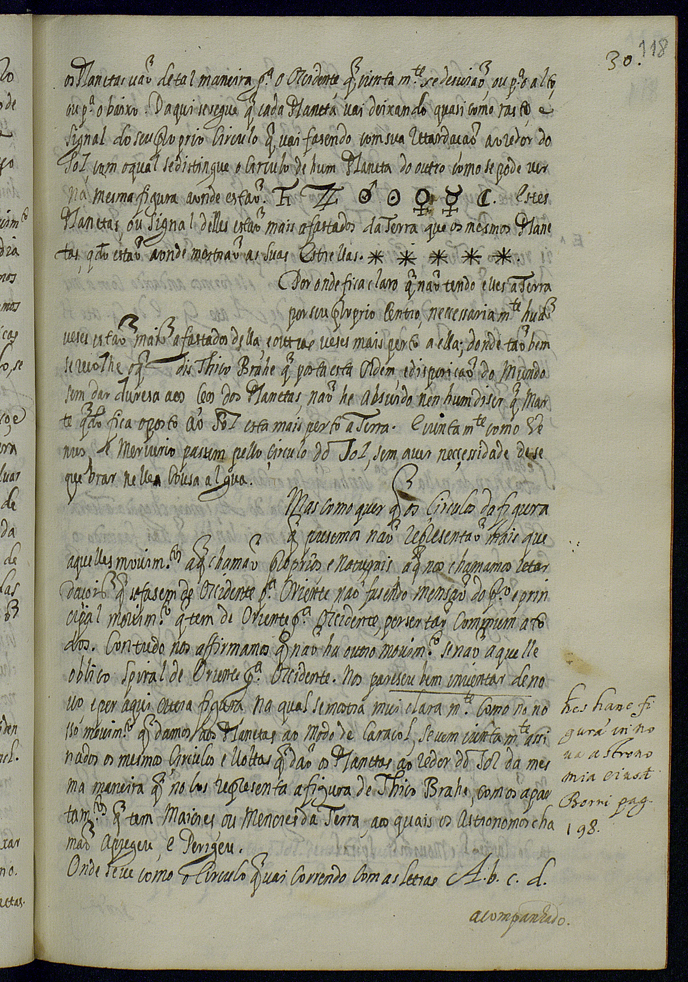 30. 118
os Planetas vaõ de tal maneira pª. o Occidente q̃ iunta m.te se desviaõ, ou pª. o alto,
ou pª. o baixo. Daqui se segue q̃ cada Planeta vai deixando quasi como rasto e
signal do seu proprio Circulo q̃ vai fasendo com sua retardacaõ ao redor do
Sol com o qual se distingue o circulo de hum Planeta do outro como se pode ver
na mesma figura aonde estaõ. ♄ ♃ ♂ ☉ ♀ ☿ ☾. Estes
Planetas, ou signal delles estaõ mais afastados da Terra, que os mesmos Plane
tas, qdo estaõ aonde mostraõ as suas Estrellas. * * * * *.
Por onde fica claro q̃ naõ tendo elles a Terra
por seu proprio Centro, necessaria m.te huãs
veses estaõ mais afastados della e outras veses mais perto a ella; donde taõ bem
se ve o q̃ dis Thico Brahe q̃ posta esta Ordem e disposicaõ do Mundo
sem dar duresa aos Ceos dos Planetas naõ ha absurdo nenhum diser q̃ Mar
te qdo fica oposto ao Sol esta mais perto a Terra. E iunta m.te como Ve
nus, e Mercurio passem pello circulo do Sol, sem aver necessidade de se
quebrar nelles Cousa algua.
Mas como quer q̃ os Circulos da figura
q̃ pusemos naõ representaõ mais que
aquelles movim.tos a q̃ chamaõ Proprios e Naturais a q̃ nos chamamos retar
dacois q̃ se fasem de Occidente pª. Oriente naõ fasendo mensaõ do pro. e prin
cipal movim.to q̃ tem de Oriente pª. Occidente, por ser taõ Commum a to
dos. Contudo nos affirmamos q̃ naõ ha outro movim.to senaõ aquelle
oblico Spiral de Oriente pª. Occidente. Nos pareseu bem inventar de no
vo e por aqui outra figura na qual se mostra mui clara m.te Como no no
sso movim.to q̃ damos aos Planetas ao Modo de Caracol, se vem iunta m.te assi
nados os mesmo Circulo e Voltas q̃ daõ os Planetas ao redor do Sol da mes
ma maneira q̃ no los representa a figura de Thico Brahe, com os apar
tam.tos q̃ tem Maiores ou Menores da Terra, aos quais os Astronomos cha
maõ Apogeu, e Perigeu.
Onde se ve como o Circulo q̃ vai Correndo Com as letras A. b. c. d.
acompanhado.
hes hanc fi
gurã in no
va astrono
mia eiusd
Borri pag.
198.